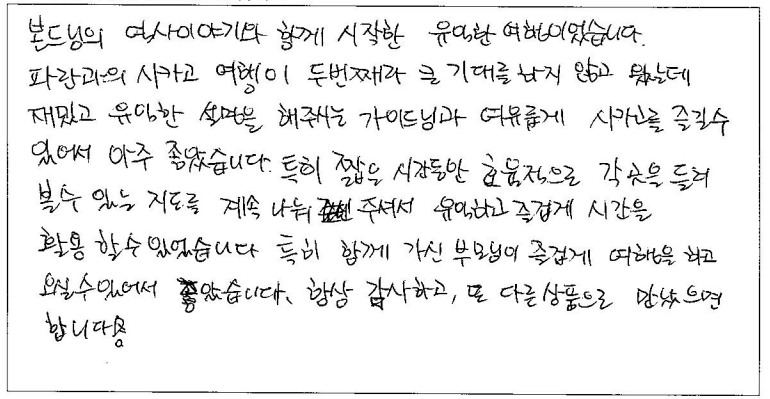 본드님의 역사이야기와 함께 시작한 유익한 여행이었습니다.
파랑과의 시카고 여행이 두번째라 큰 기대를 하지 않고 왔는데
재밌고 유익한 설명을 해주시는 가이드님과 여유롭게 시카고를 즐길수
있어서 아주 좋았습니다. 특히 짧은 시간동안 효율적으로 각 곳을 들려
볼수 있는 지도를 계속 나눠 주셔서 유익하고 즐겁게 시간을
활용 할수 있었습니다 특히 함께 가신 부모님이 즐겁게 여행을 하고
오실수 있어서 좋았습니다. 항상 감사하고, 또 다른 상품으로 만났으면
합니다